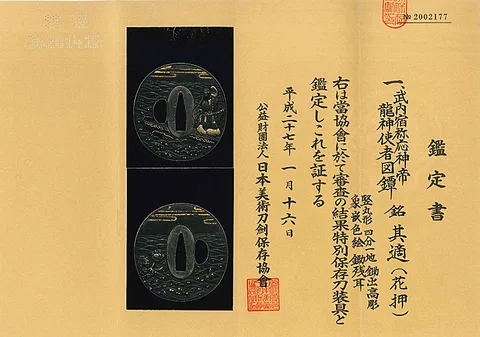 № 2002177
鑑定書
一、武内宿祢応神帝
龍神使者図鐔 銘 其適(花押)
竪丸形 四分一地 鋤出高彫
象嵌色絵 鋤残耳
右は當協會に於て審査の結果特別保存刀装具と
鑑定しこれを証する
平成二十七年 一月十六日
公益財團法人 日本美術刀劍保存協會